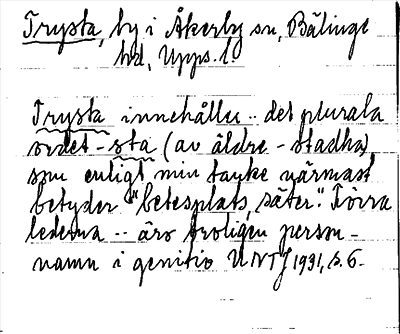 Trysta, by i Åkerby sn, Bälinge
hd, Upps. l.
Trysta innehåller .. det plurala
ordet -sta (av äldre -stadha)
som enligt min tanke närmast
betyder "betesplats, säter". Förra
lederna .. äro troligen person-
namn i genitiv UNTJ 1931, s. 6.